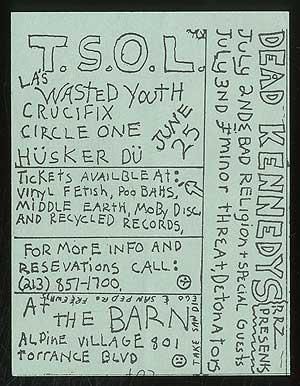 T.S.O.L.
LA'S
WASTED YOUTH
CRUCIFIX
CIRCLE ONE
HÜSKER DÜ
JUNE
25
TICKETS AVAILBLE AT:
VINYL FETISH, POO BAHS,
MIDDLE EARTH, MOBY DISC,
AND RECYCLED RECORDS,
FOR MORE INFO AND
RESEVATIONS CALL:
(213) 857-1700.
AT
THE BARN
ALPINE VILLAGE 801
TORRANCE BLVD
SAN PEDRO
DEAD KENNEDYS
PRESENTS
JULY 2ND BAD RELIGION + SPECIAL GUESTS
JULY 3ND MINOR THREAT DETONATORS